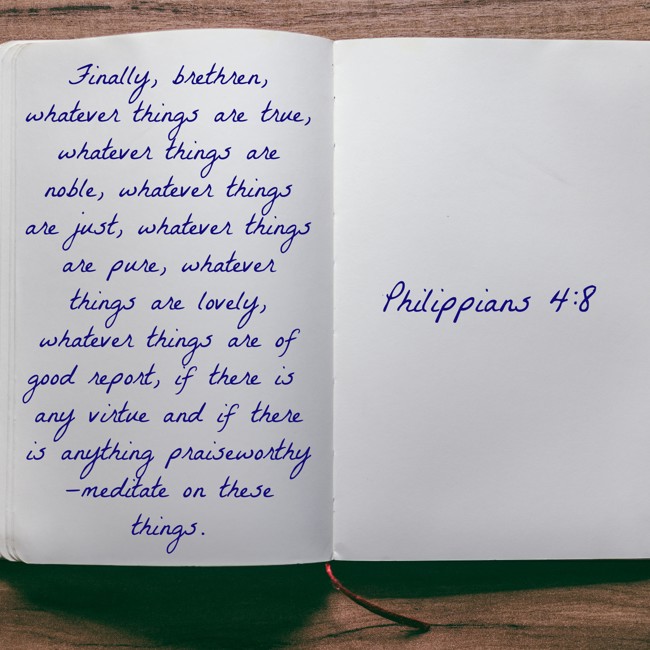 Finally, brethren,
whatever things are true,
whatever things are
noble, whatever things
are just, whatever things
are pure, whatever
things are lovely,
whatever things are of
good report, if there is
any virtue and if there
is anything praiseworthy
—meditate on these
things.
Philippians 4:8